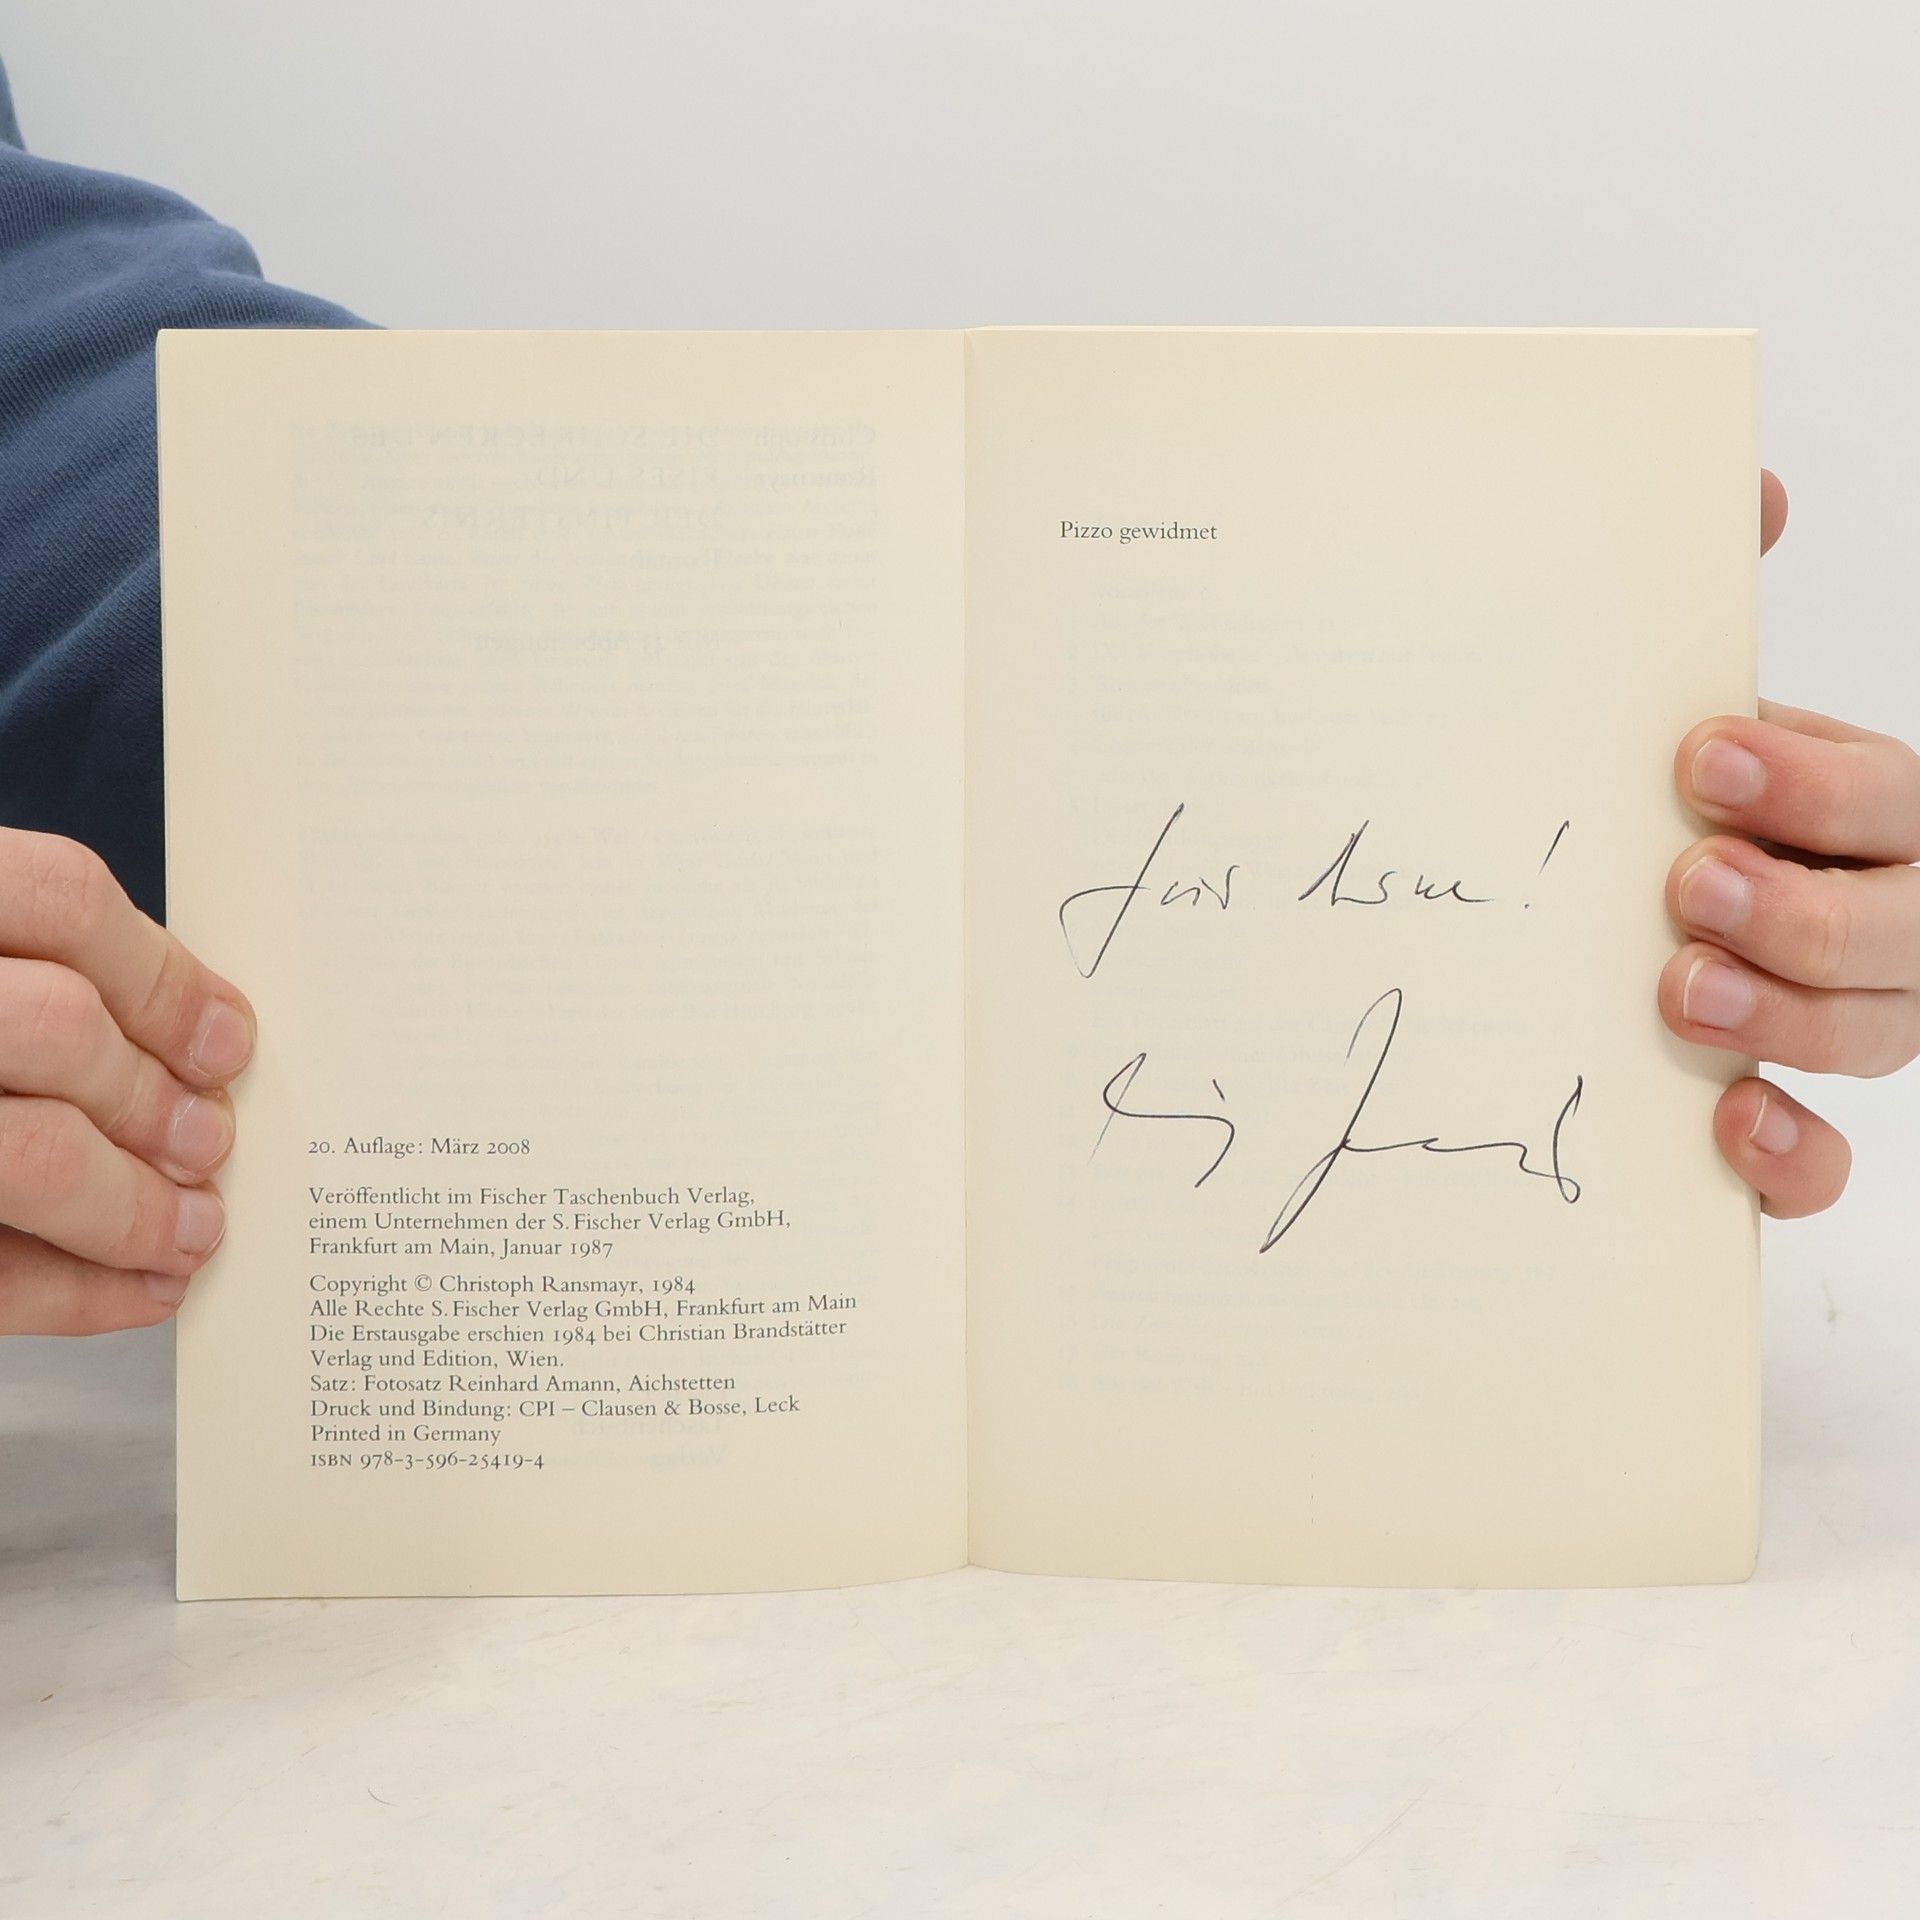 20. Auflage: März 2008
Veröffentlicht im Fischer Taschenbuch Verlag,
einem Unternehmen der S. Fischer Verlag GmbH,
Frankfurt am Main, Januar 1987
Copyright © Christoph Ransmayr, 1984
Alle Rechte S. Fischer Verlag GmbH, Frankfurt am Main
Die Erstausgabe erschien 1984 bei Christian Brandstätter
Verlag und Edition, Wien.
Satz: Fotosatz Reinhard Amann, Aichstetten
Druck und Bindung: CPI – Clausen & Bosse, Leck
Printed in Germany
ISBN 978-3-596-25419-4
Pizzo gewidmet